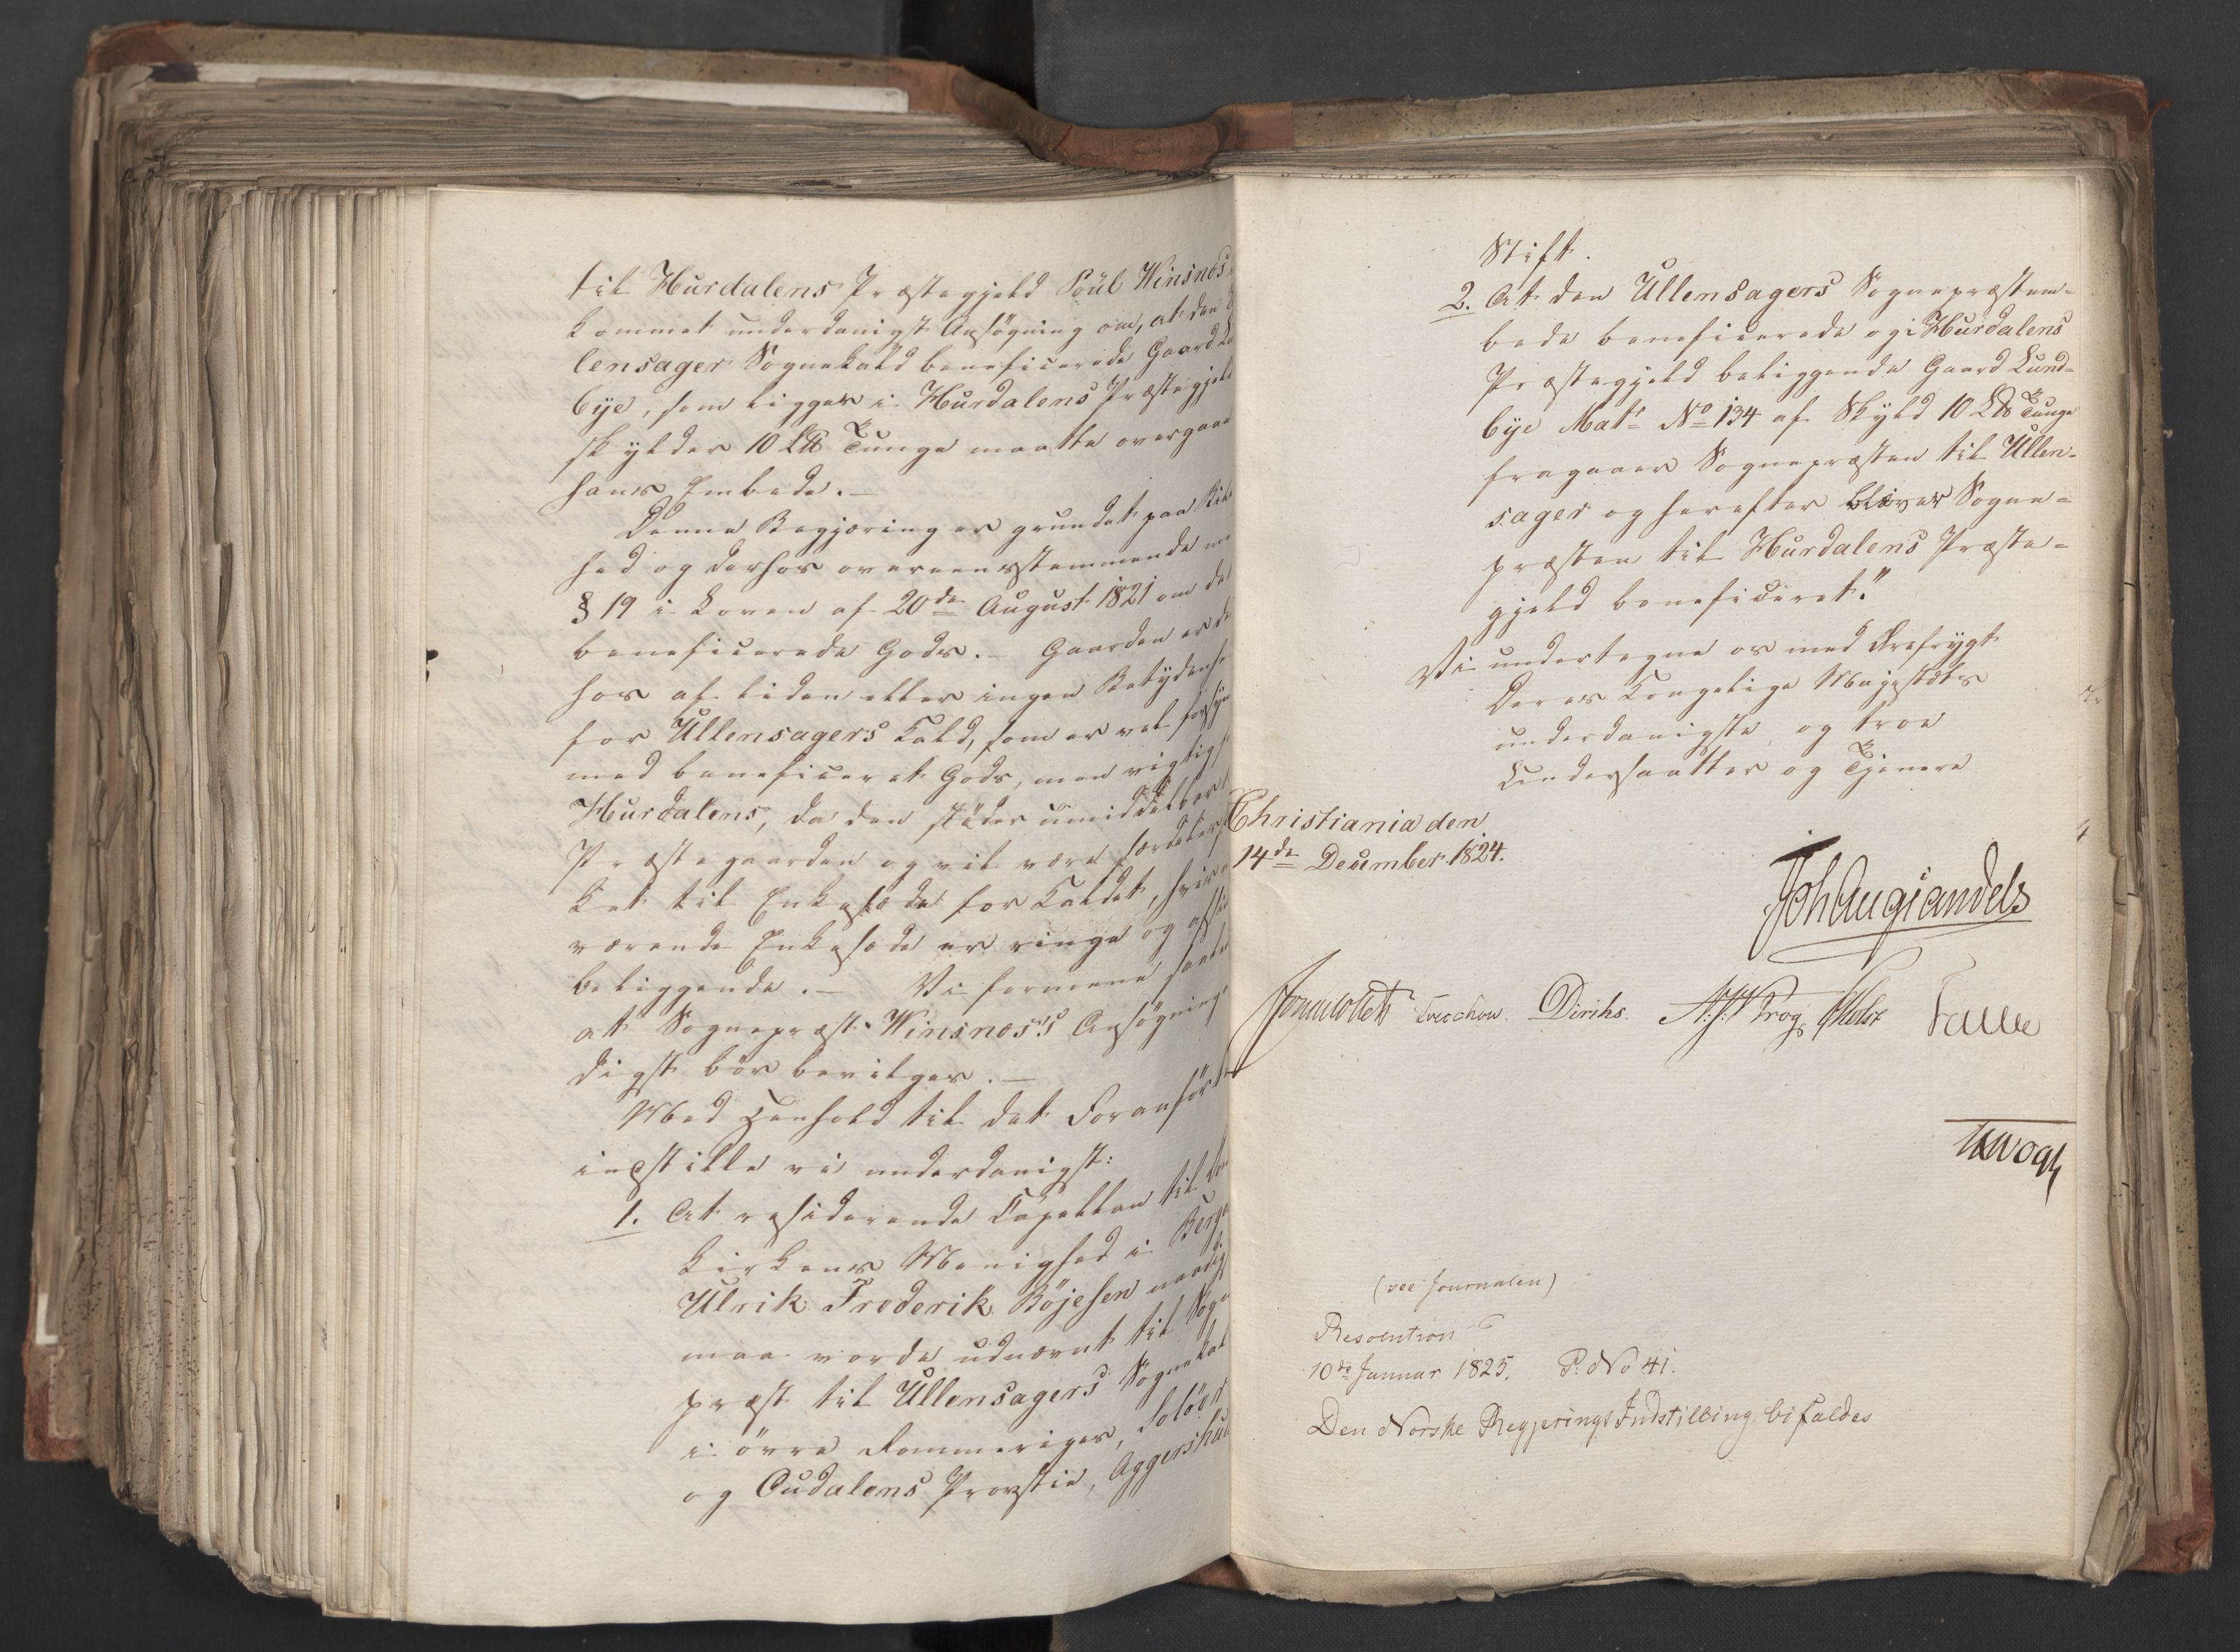 til Hurdalens Præstegjeld Poul Winsnes
kommet underdanigst Ansøgning om, at den
lensager Sognekald beneficerede Gaard
bye, som ligger i Hurdalens Præstegjeld
skylder 10 L℔ Tunge maatte overgaae
hans Embede.—
Denne Begjæring er grundet paa
hed og derhos overeensstemmende
§ 19 i Loven af 20de August 1821 om det
beneficerede Gods.— Gaarden er
hos af liden eller ingen Betydenhe
for Ullensagers Kald, som er vel forsyn
med beneficeret Gods, men vigtig
Hurdalens, da den støder umiddelbar
Præstegaarden og vil være særdeles
ket til Enkesæde for Kaldet, hvis
værende Enkesæde er ringe og
beliggende.— Vi formene
at Sognepræst Winsnes's Ansøgning
digst bør bevilges.—
Med Henhold til det Foranførte
indstille vi underdanigst:
1. At residerende Capellan til
kirkens Menighed i Berge
Ulrik Frederik Böjesen naadig
maa vorde udnævnt til Sogne
præst til Ullensagers Sognekald
i øvre Rommeriges, Soløer
og Oudalens Provstie, Aggershuu
Stift.
2. At den Ullensagers Sognepræstem-
bede beneficerede og i Hurdalens
Præstegjeld beliggende Gaard Lund-
bye Matr No 134 af Skyld 10 L℔ Tunge
fragaaer Sognepræsten til Ullen-
sager og herefter bliver Sogne-
præsten til Hurdalens Præste-
gjeld beneficeret."
Vi undertegne os med Ærefrygt
Deres Kongelige Majestæts
underdanigste og troe
Undersaatter og Tjenere
Christiania den
14de December 1824.
Joh Aug Sandels
Sommerfeldt Treschow. Diriks. Krog Holst Fasting
Vogt
(see Journalen)
Resolution
10de Januar 1825. P. No 41.
Den Norske Regjerings Indstilling bifaldes